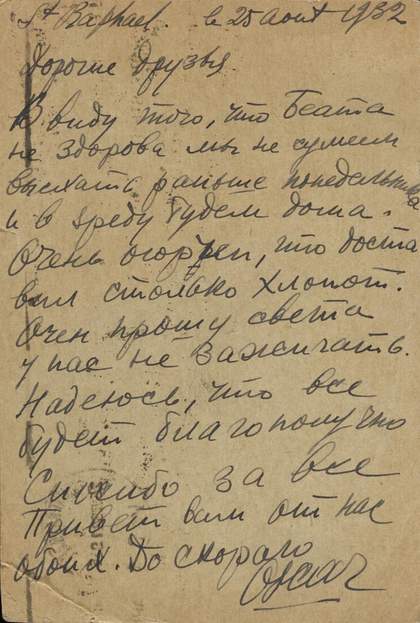 St Raphael. le 25 août 1932
Дорогие друзья
В виду того, что Беата
не здорова мы не сумеем
выехать раньше понедельника
и в среду будем дома.
Очень огорчен, что доста
вил столько хлопот.
Очен прошу света
у нас не зажичать.
Надеюсь, что все
будет благополучно
Спосибо за все
Привет вам от нас
обоих. До скораго
Oscar